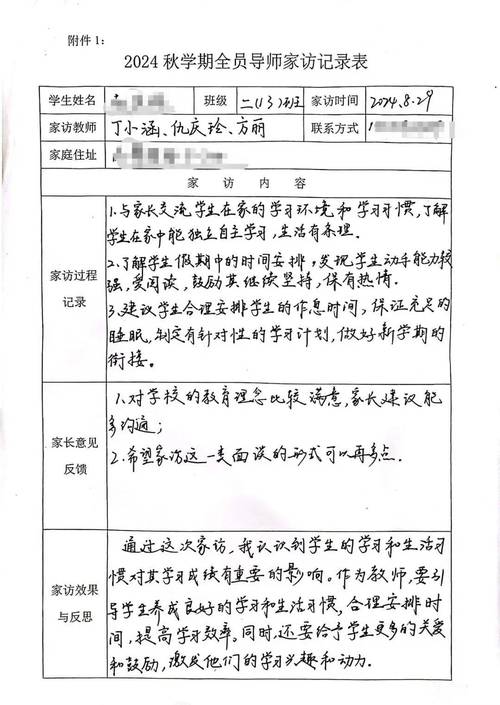 附件 1：
2024 秋学期全员导师家访记录表
学生姓名 班级 二(13)班 家访时间 2024.8.29
家访教师 丁小涵、仇庆玲、方丽 联系方式
家庭住址
家 访 内 容
家访过程
记录
1.与家长交流学生在家的学习环境和学习习惯,了解
学生在家中能独立自主学习,生活有条理.
2.了解学生假期中的时间安排,发现学生动手能力较
强,爱阅读,鼓励其继续坚持,保有热情.
3.建议学生合理安排学生的作息时间,保证充足的
睡眠,制定有针对性的学习计划,做好新学期的
衔接。
家长意见
反馈
1.对学校的教育理念比较满意,家长建议能
多沟通；
2.希望家访这一类面谈的形式可以再多点.
家访效果
与反思
通过这次家访,我认识到学生的学习和生活习
惯对其学习成绩有重要的影响。作为教师,要引
导学生养成良好的学习和生活习惯,合理安排时
间,提高学习效率。同时,还要给予学生更多的关爱
和鼓励,激发他们的学习兴趣和动力.